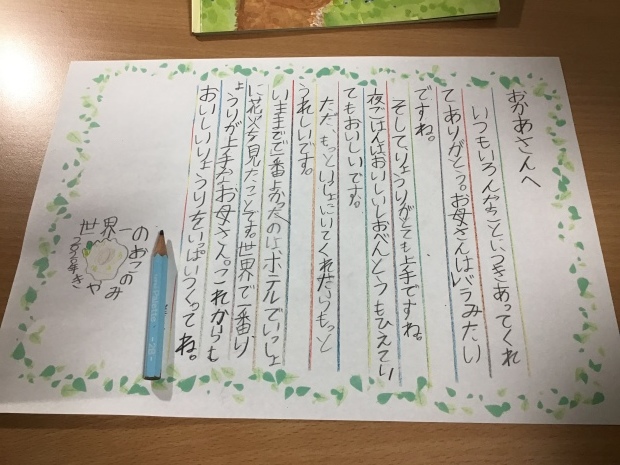 おかあさんへ
いつもいろんなことにつきあってくれ
てありがとう。お母さんはバラみたい
ですね。
そしてりょうりがとても上手ですね。
夜ごはんはおいしいしおべんとうもひえてい
てもおいしいです。
ただ、もっといっしょにいてくれたらもっと
うれしいです。
いままで一番よかったのは、ホテルでいっしょ
に花火を見たことです。世界で一番り
ょうりが上手なお母さん。これからも
おいしいりょうりをいっぱいつくってね。
世界一
のおこのみ
やき